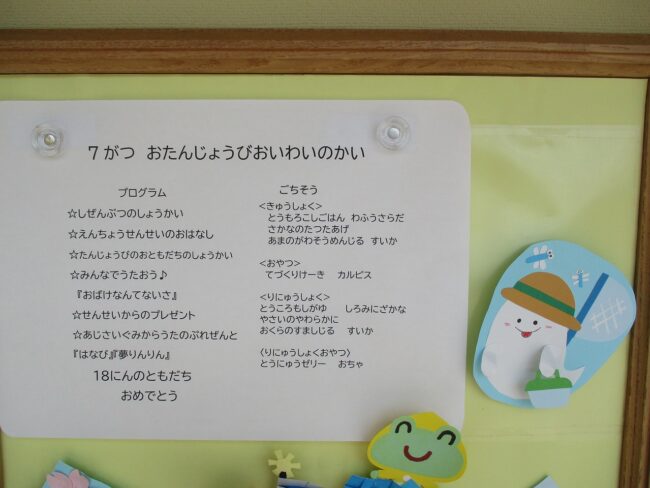 7がつ おたんじょうびおいわいのかい
プログラム
☆しぜんぶつのしょうかい
☆えんちょうせんせいのおはなし
☆たんじょうびのおともだちのしょうかい
☆みんなでうたおう♪
『おばけなんてないさ』
☆せんせいからのプレゼント
☆あじさいぐみからうたのぷれぜんと
『はなび』『夢りんりん』
18にんのともだち
おめでとう
ごちそう
<きゅうしょく>
とうもろこしごはん わふうさらだ
さかなのたつたあげ
あまのがわそうめんじる すいか
<おやつ>
てづくりけーき カルピス
<りにゅうしょく>
とうころもしがゆ しろみにざかな
やさいのやわらかに
おくらのすましじる すいか
〈りにゅうしょくおやつ〉
とうにゅうゼリー おちゃ